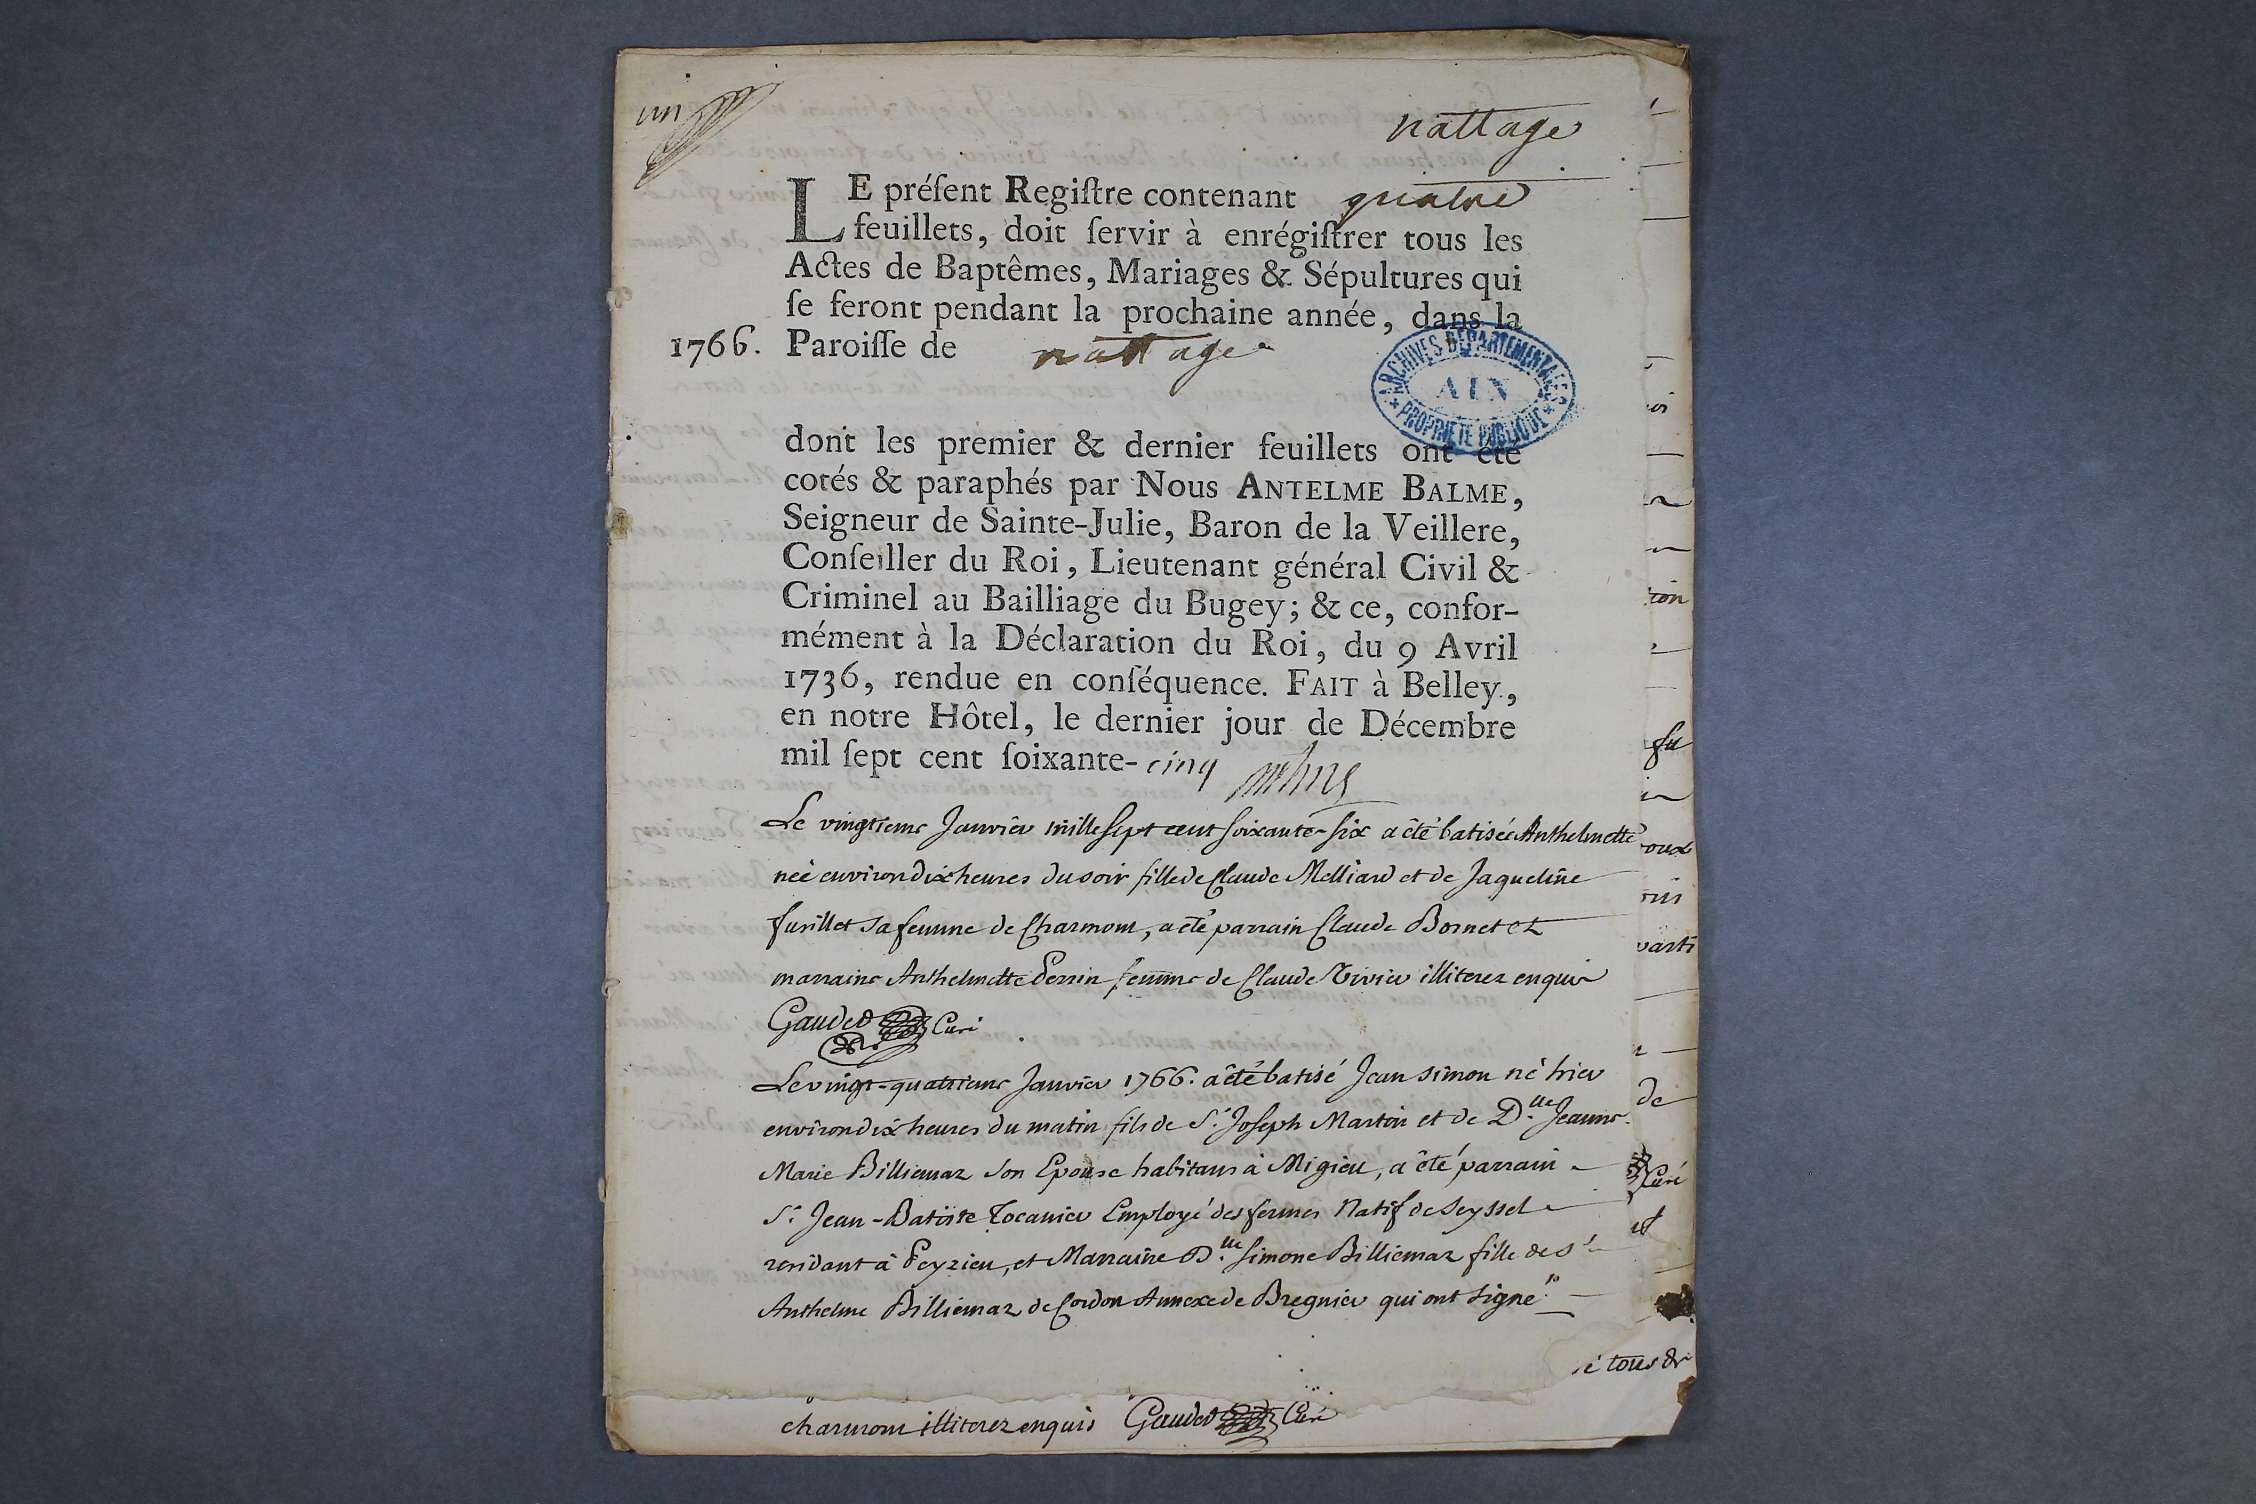 un
nattage
LE préſent Regiſtre contenant quatre
feuillets, doit ſervir à enrégiſtrer tous les
Actes de Baptêmes, Mariages & Sépultures qui
ſe feront pendant la prochaine année, dans la
1766. Paroiſſe de nattage
ARCHIVES DÉPARTEMENTALES
AIN
PROPRIÉTÉ PUBLIQUE
dont les premier & dernier feuillets ont été
cotés & paraphés par Nous ANTELME BALME,
Seigneur de Sainte-Julie, Baron de la Veillere,
Conſeiller du Roi, Lieutenant général Civil &
Criminel au Bailliage du Bugey; & ce, confor-
mément à la Déclaration du Roi, du 9 Avril
1736, rendue en conſéquence. FAIT à Belley,
en notre Hôtel, le dernier jour de Décembre
mil ſept cent ſoixante-cinq
Le vingtieme Janvier mille sept cent soixante-six a êté batisée Anthelmette
née environ dix heures du soir fille de Claude Melliard et de Jaqueline
furillet sa femme de Charmont, a êté parrain Claude Bornet et
marraine Anthelmette Perrin femme de Claude Vivier illiterez enquis
Gaudet Curé
Le vingt-quatrieme Janvier 1766. a êté batisé Jean simon né hier
environ dix heures du matin fils de Sr. Joseph Martin et de Dlle. Jeanne
Marie Billiemaz son Epouse habitans à Migieu, a êté parrain
Sr. Jean-Batiste Tocanier Employé des fermes Natif de Seyssel
residant à Peyzieu, et Marraine Dlle. Simone Billiemaz fille de Sr
Anthelme Billiemaz de Cordon Annexe de Bregnier qui ont signé
é tous de
charmont illiterez enquis Gaudet Curé